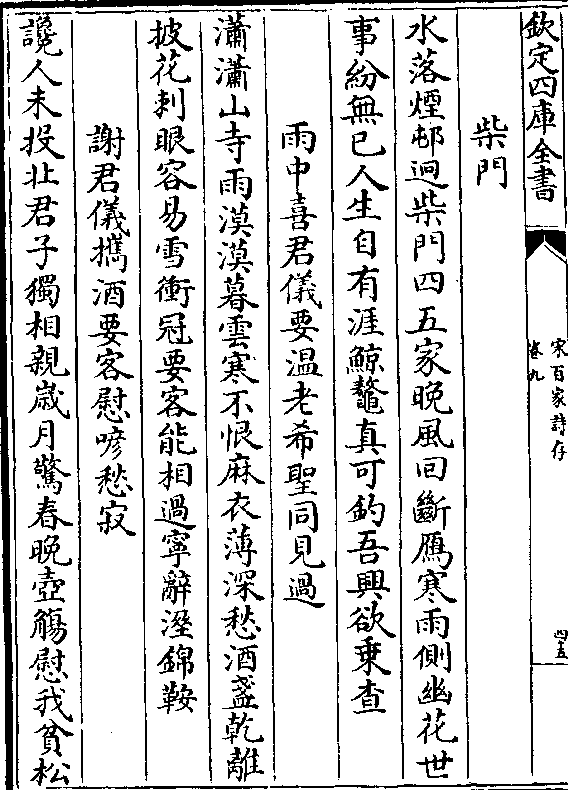 欽定四庫全書
宋百家詩存
卷九
四五
柴門
水落煙邨迥柴門四五家晚風回斷鴈寒雨側幽花世
事紛無已人生自有涯鯨鼇真可釣吾興欲乗查
雨中喜君儀要温老希聖同見過
瀟瀟山寺雨漠漠暮雲寒不恨麻衣薄深愁酒盞乾離
披花刺眼容易雪衝冠要客能相過寧辭溼錦鞍
謝君儀攜酒要客慰喭愁寂
讒人未投北君子獨相親歳月驚春晚壺觴慰我貧松